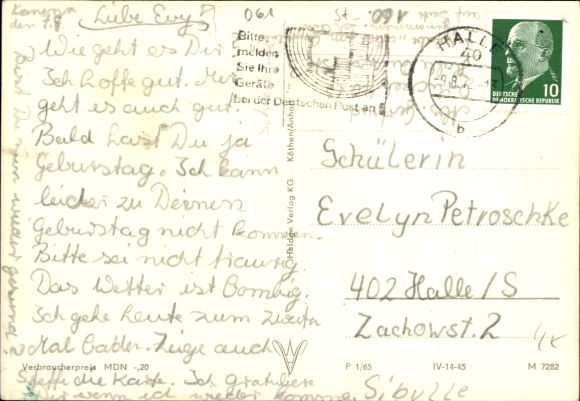 Kanena
den 7.8.
Liebe Evy!
Wie geht es Dir
Ich hoffe gut. Mir
geht es auch gut.
Bald hast Du ja
Geburtstag. Ich kann
leider zu Deinem
Geburtstag nicht kommen.
Bitte sei nicht traurig.
Das Wetter ist Bombig.
Ich gehe heute zum zweiten
Mal baden. Zeige auch
Steffi die Karte. Ich gratuliere
Dir wenn ich wieder komme. Sibylle
Bist Du nun wieder gesund?
061
Bitte
melden
Sie Ihre
Geräte
bei der Deutschen Post an
HALLE
40
b
10
DEUTSCHE
DEMOKRATISCHE REPUBLIK
Schülerin
Evelyn Petroschke
402 Halle/S
Zachowst. 2
Heldge Verlag KG · Köthen/Anhalt
Verbraucherpreis MDN -,20
P 1/65 IV-14-45 M 7282